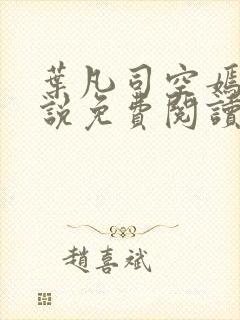 葉凡司空嫣
說免費閱讀
趙喜斌